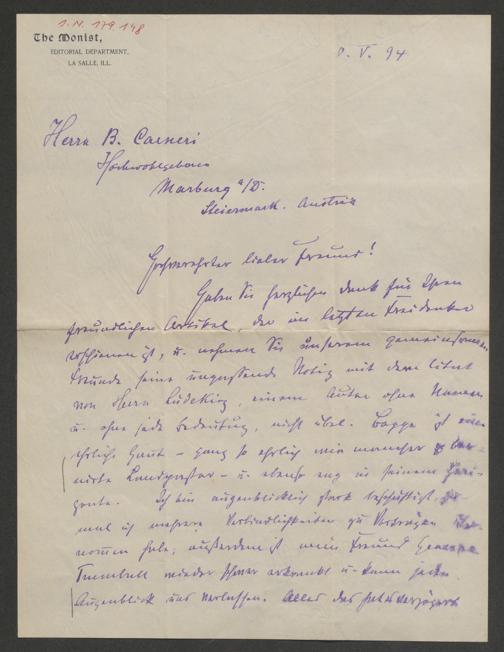 I.N. 179.148
The Monist,
EDITORIAL DEPARTMENT,
LA SALLE, ILL.
V. 94
Herrn B. Carneri
Hochwohlgeboren
Marburg a/D.
Steiermark. Austria
Hochverehrter lieber Freund!
Haben Sie herzlichen Dank für Ihren
freundlichen Artikel, der im letzten Freidenker
erschienen ist, u. nehmen Sie unserem gemeinsamen
Freunde seine unpassende Notiz mit dem Citat
von Herrn Lüdeking, einem Autor ohne Namen
u. ohne jede Bedeutung, nicht übel. Boppe ist eine
ehrliche Haut – ganz so ehrlich wie mancher
Landpastor – u. ebenso eng in seinem Hori-
zonte. Ich bin augenblicklich stark beschäftigt, zu-
mal ich mehrere Verbindlichkeiten zu Vorträgen über-
nommen habe; außerdem ist mein Freund General
Trumbull wieder schwer erkrankt u. kann jeden
Augenblick uns verlassen. Alles das hat verzögert